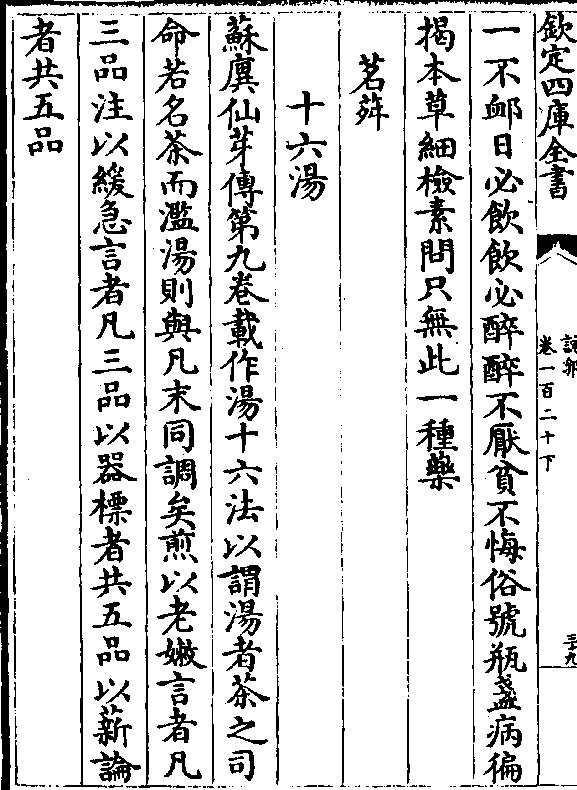 欽定四庫全書
說郛
卷一百二十下
三十九
一不卹日必飲飲必醉醉不厭貧不悔俗號瓶盞病徧
揭本草細檢素問只無此一種藥
茗荈
十六湯
蘇廙仙芽傳第九卷載作湯十六法以謂湯者茶之司
命若名茶而濫湯則與凡末同調矣煎以老嫩言者凡
三品注以緩急言者凡三品以器標者共五品以薪論
者共五品